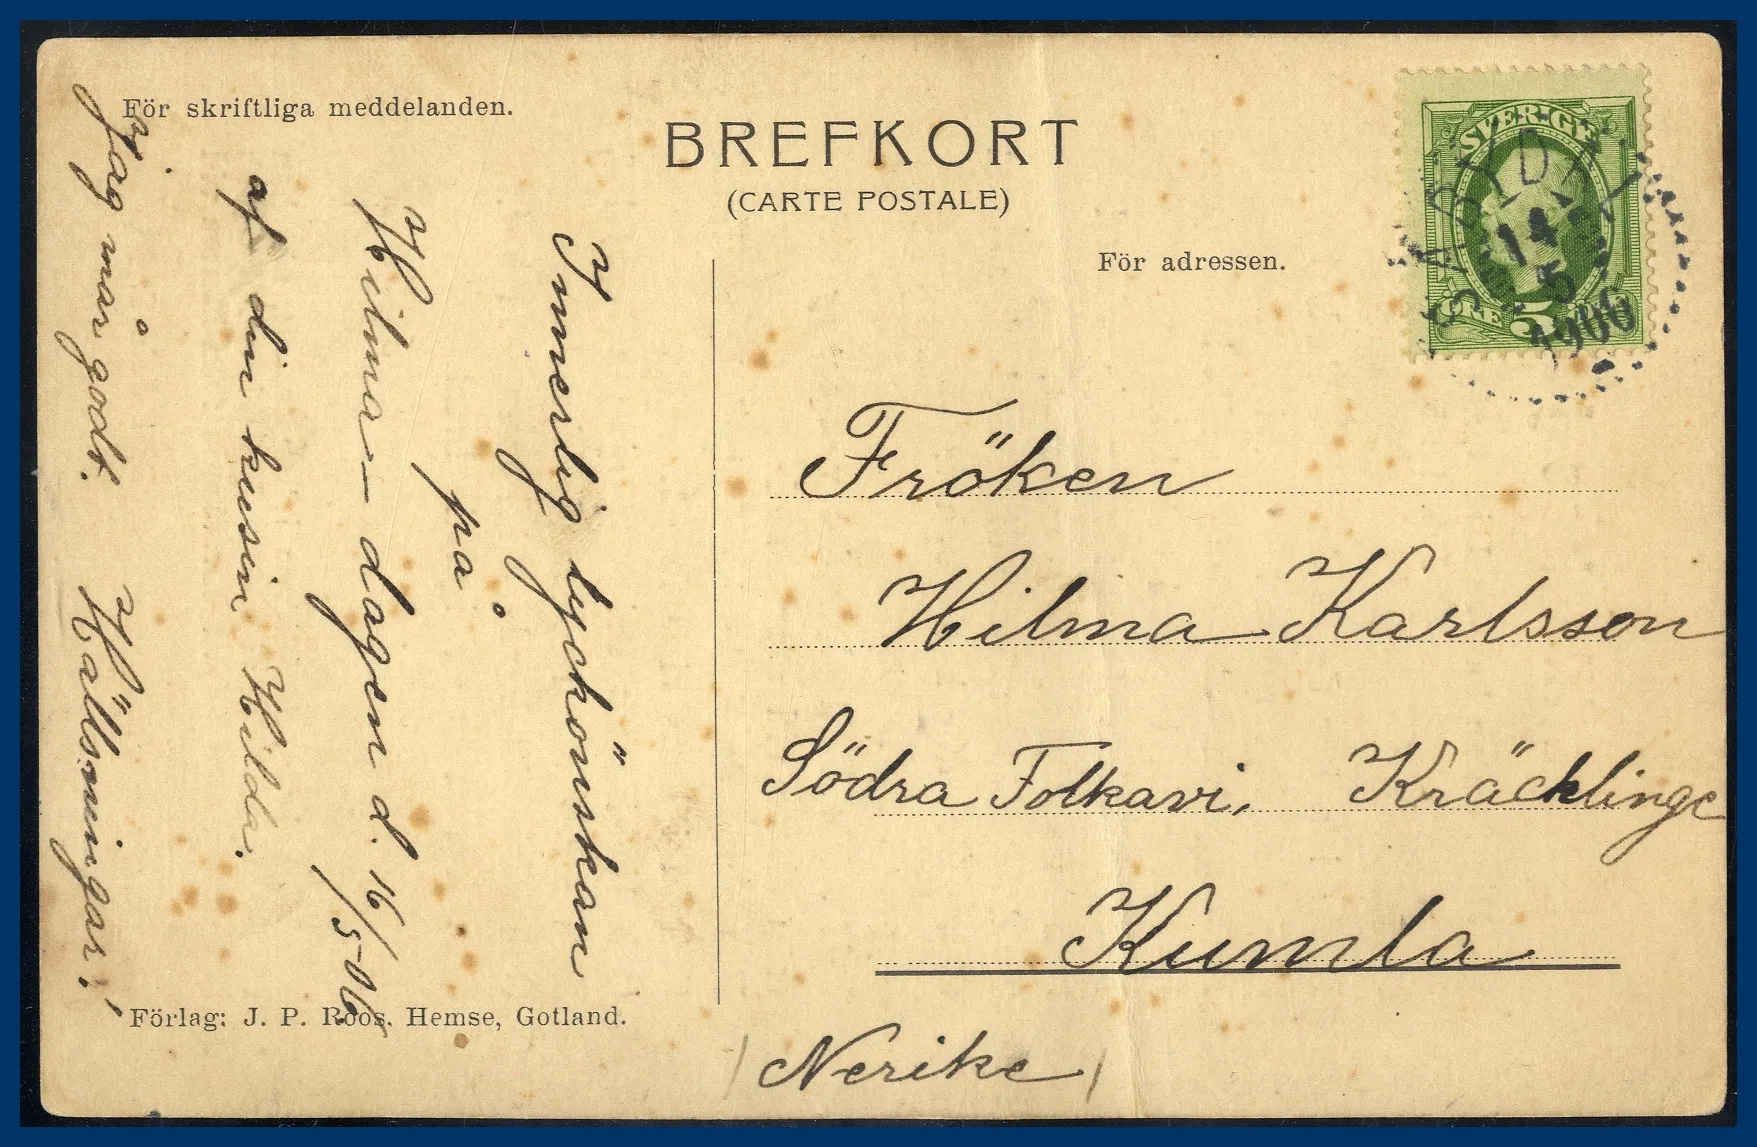 För skriftliga meddelanden.
BREFKORT
(CARTE POSTALE)
För adressen.
SVERIGE
5
14
5
1906
Innerlig lyckönskan
på
Hilma-dagen d. 16/5-06.
af din kusin Hilda.
Jag mår godt. Hälsningar!
Fröken
Hilma Karlsson
Södra Folkavi, Kräcklinge
Kumla
(Nerike)
Förlag: J. P. Roos. Hemse, Gotland.